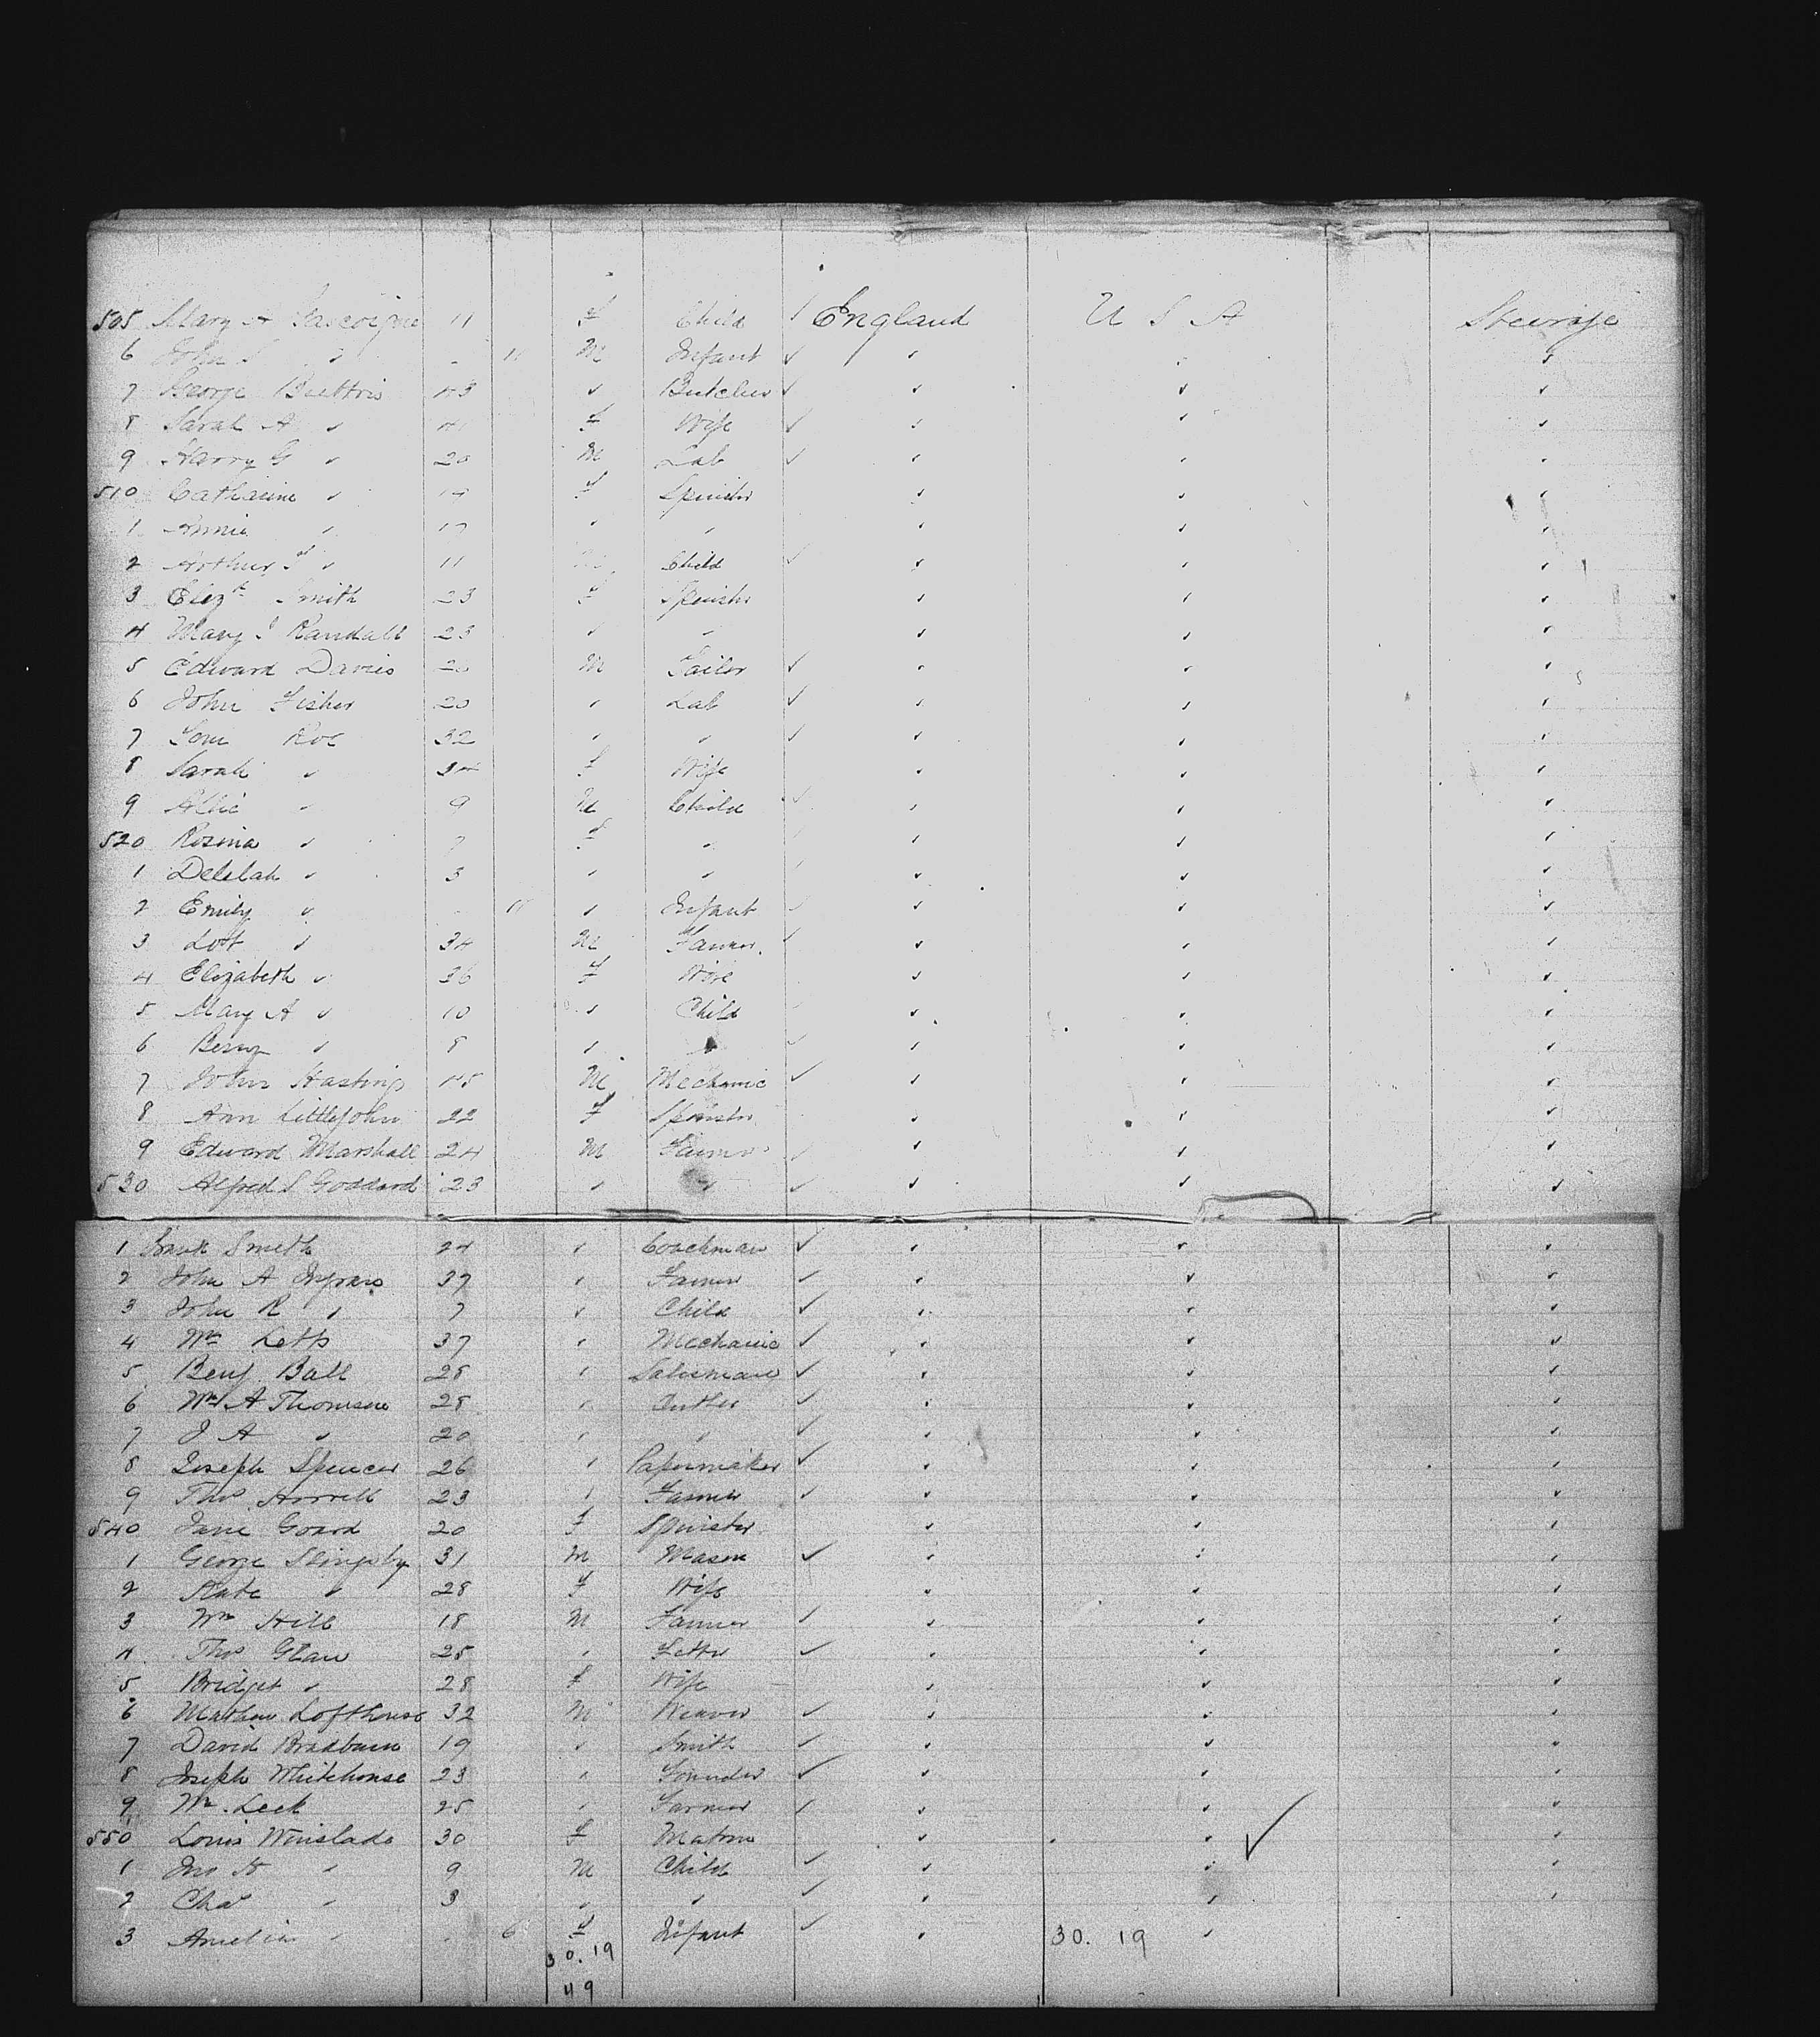 505 Mary A Gascoigne 11 F Child England U S A Steerage
6 John S " 11 M Infant " " "
7 George 43 " Butcher " " "
8 Sarah A " F Wife " " "
9 Harry G " 20 M Lab " " "
510 Catharine " 19 F Spinster " " "
1 Annie " 17 " " " " "
2 Arthur F " 11 M Child " " "
3 Elizth Smith 23 F Spinster " " "
4 Mary J Randall 23 " " " " "
5 Edward Davies 20 M Tailor " " "
6 John Fisher 20 " Lab " " "
7 Tom Roe 32 " " " " "
8 Sarah " 34 F Wife " " "
9 " 9 M Child " " "
520 Rosina " 7 F " " " "
1 Delilah " 3 " " " " "
2 Emily " 11 " Infant " " "
3 Lott " 34 M Farmer " " "
4 Elizabeth " 36 F Wife " " "
5 Mary A " 10 " Child " " "
6 " 8 " " " " "
7 John Hastings 45 M Mechanic " " "
8 Ann Littlejohn 22 F Spinster " " "
9 Edward Marshall 24 M Farmer " " "
530 Alfred S Goddard 23 " " " " "
1 Frank Smith 24 " Coachman " " "
2 John A 37 " Farmer " " "
3 John R " 7 " Child " " "
4 Wm Letts 37 " Mechanic " " "
5 Benj Ball 28 " Salesman " " "
6 Wm A Thomson 28 " Cutler " " "
7 J A " 20 " " " " "
8 Joseph Spencer 26 " Papermaker " " "
9 Thos Horrell 23 " Farmer " " "
540 Jane Goard 20 F Spinster " " "
1 George Slingsby 31 M Mason " " "
2 Kate " 28 F Wife " " "
3 Wm Hill 18 M Farmer " " "
4 Thos 25 " Fitter " " "
5 Bridget " 28 F Wife " " "
6 Mathew Lofthouse 32 M Weaver " " "
7 David Bradburn 19 " Smith " " "
8 Joseph Whitehouse 23 " Founder " " "
9 Wm Leek 25 " Farmer " " "
550 Louis Winslade 30 F Matron " " "
1 Jno H " 9 M Child " " "
2 Chas " 3 " " " " "
3 Amelia " 6 F Infant " 30. 19 "
30. 19
49